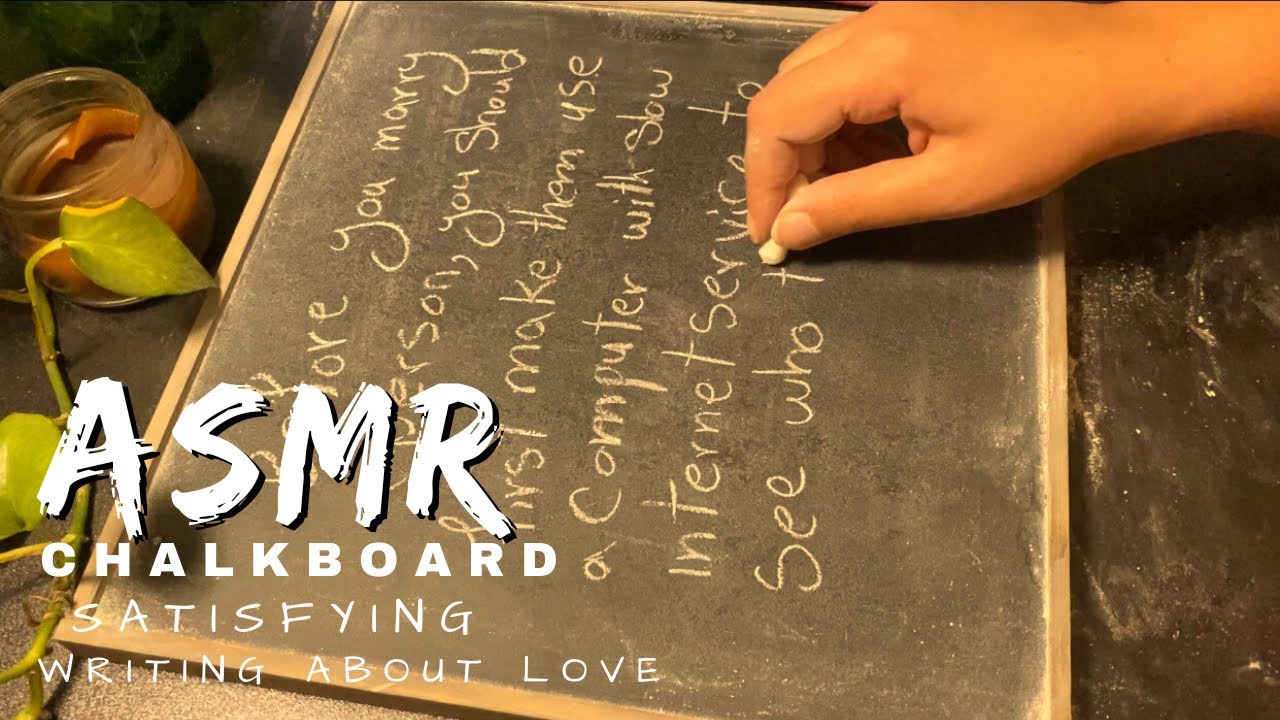 Before you marry
a person, you should
first make them use
a computer with slow
Internet service to
See who t
ASMR
CHALKBOARD
SATISFYING
WRITING ABOUT LOVE